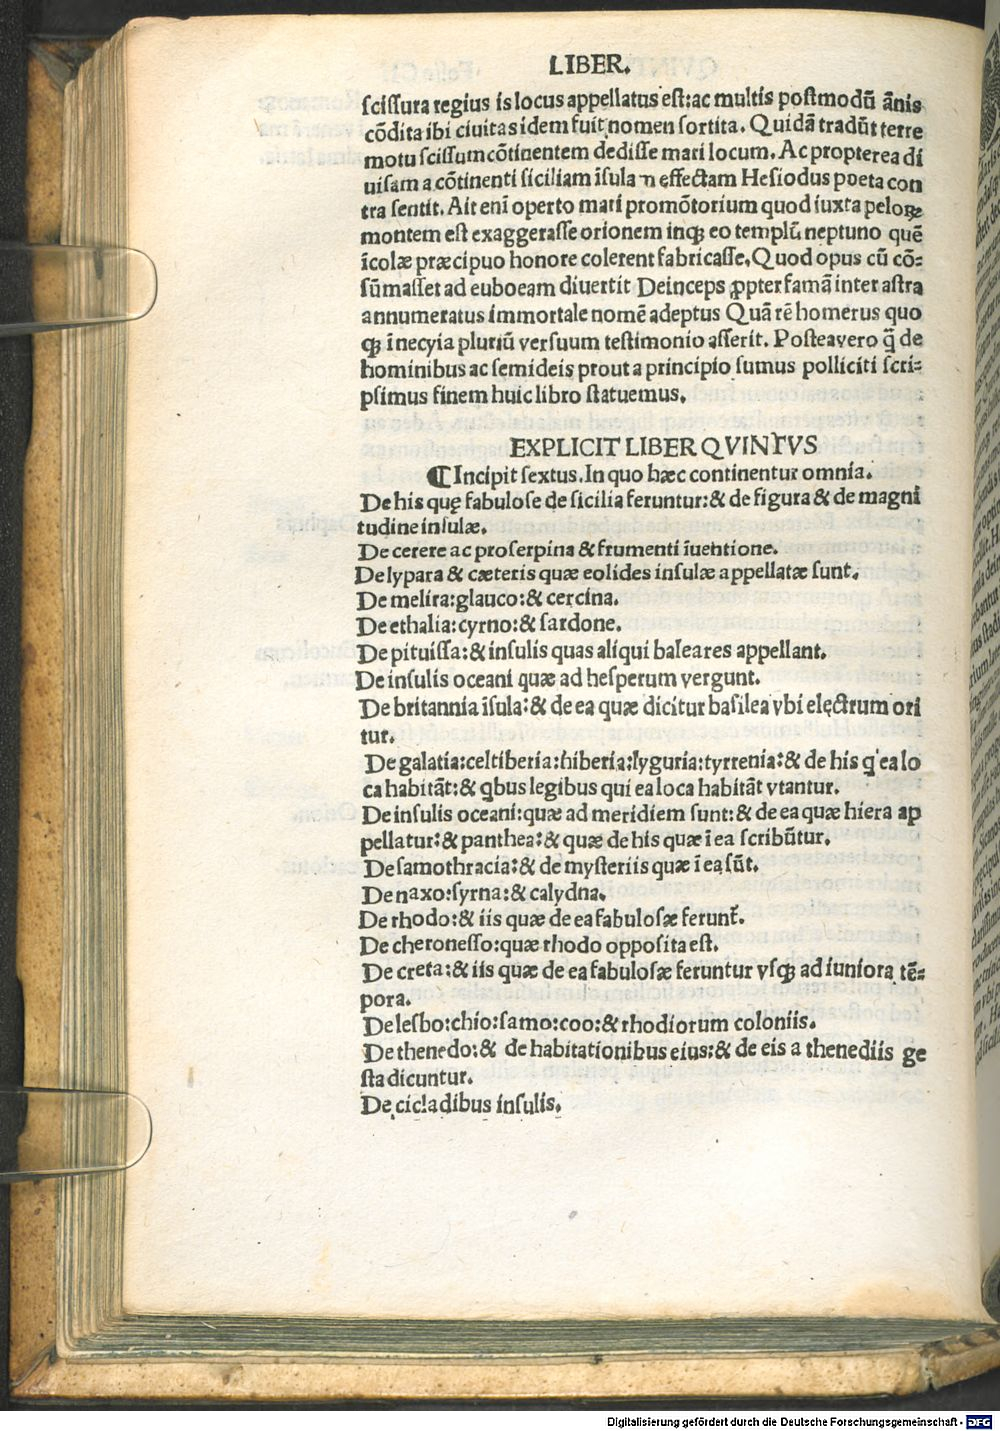 LIBER.
scissura regius is locus appellatus est: ac multis postmodũ ãnis
cõdita ibi ciuitas idem fuit nomen sortita. Quidã tradũt terre
motu scissum cõtinentem dedisse mari locum. Ac propterea di
uisam a cõtinenti siciliam ĩsula ⁊ effectam Hesiodus poeta con
tra sentit. Ait enĩ operto mari promõtorium quod iuxta peloꝝ
montem est exaggerasse orionem inqꝫ eo templũ neptuno quẽ
ĩcolæ præcipuo honore colerent fabricasse. Quod opus cũ cõ:
sũmasset ad euboeam diuertit Deinceps ꝓpter famã inter astra
annumeratus immortale nomẽ adeptus Quã rẽ homerus quo
qꝫ ĩ necyia pluriũ versuum testimonio asserit. Posteavero q̃ de
hominibus ac semideis prout a principio sumus polliciti scri:
psimus finem huic libro statuemus.
EXPLICIT LIBER QVINTVS
¶ Incipit sextus. In quo hæc continentur omnia.
De his quę fabulose de sicilia feruntur: & de figura & de magni
tudine insulæ.
De cerere ac proserpina & frumenti ĩuentione.
De lypara & cæteris quæ eolides insulæ appellatæ sunt.
De melira: glauco: & cercina.
De ethalia: cyrno: & sardone.
De pituissa: & insulis quas aliqui baleares appellant.
De insulis oceani quæ ad hesperum vergunt.
De britannia ĩsula: & de ea quæ dicitur basilea vbi elęctrum ori
tur.
De galatia: celtiberia: hiberia: lyguria: tyrrenia: & de his q̃ ea lo
ca habitãt: & qbus legibus qui ea loca habitãt vtantur.
De insulis oceani: quæ ad meridiem sunt: & de ea quæ hiera ap
pellatur: & panthea: & quæ de his quæ ĩ ea scribũtur.
De samothracia: & de mysteriis quæ ĩ ea sũt.
De naxo: syrna: & calydna.
De rhodo: & iis quæ de ea fabulosæ ferunt̃.
De cheronesso: quæ rhodo opposita est.
De creta: & iis quæ de ea fabulosæ feruntur vsqꝫ ad iuniora tẽ:
pora.
De lesbo: chio: samo: coo: & rhodiorum coloniis.
De thenedo: & de habitationibus eius: & de eis a thenediis ge
sta dicuntur.
De cicladibus insulis.
Digitalisierung gefördert durch die Deutsche Forschungsgemeinschaft - DFG